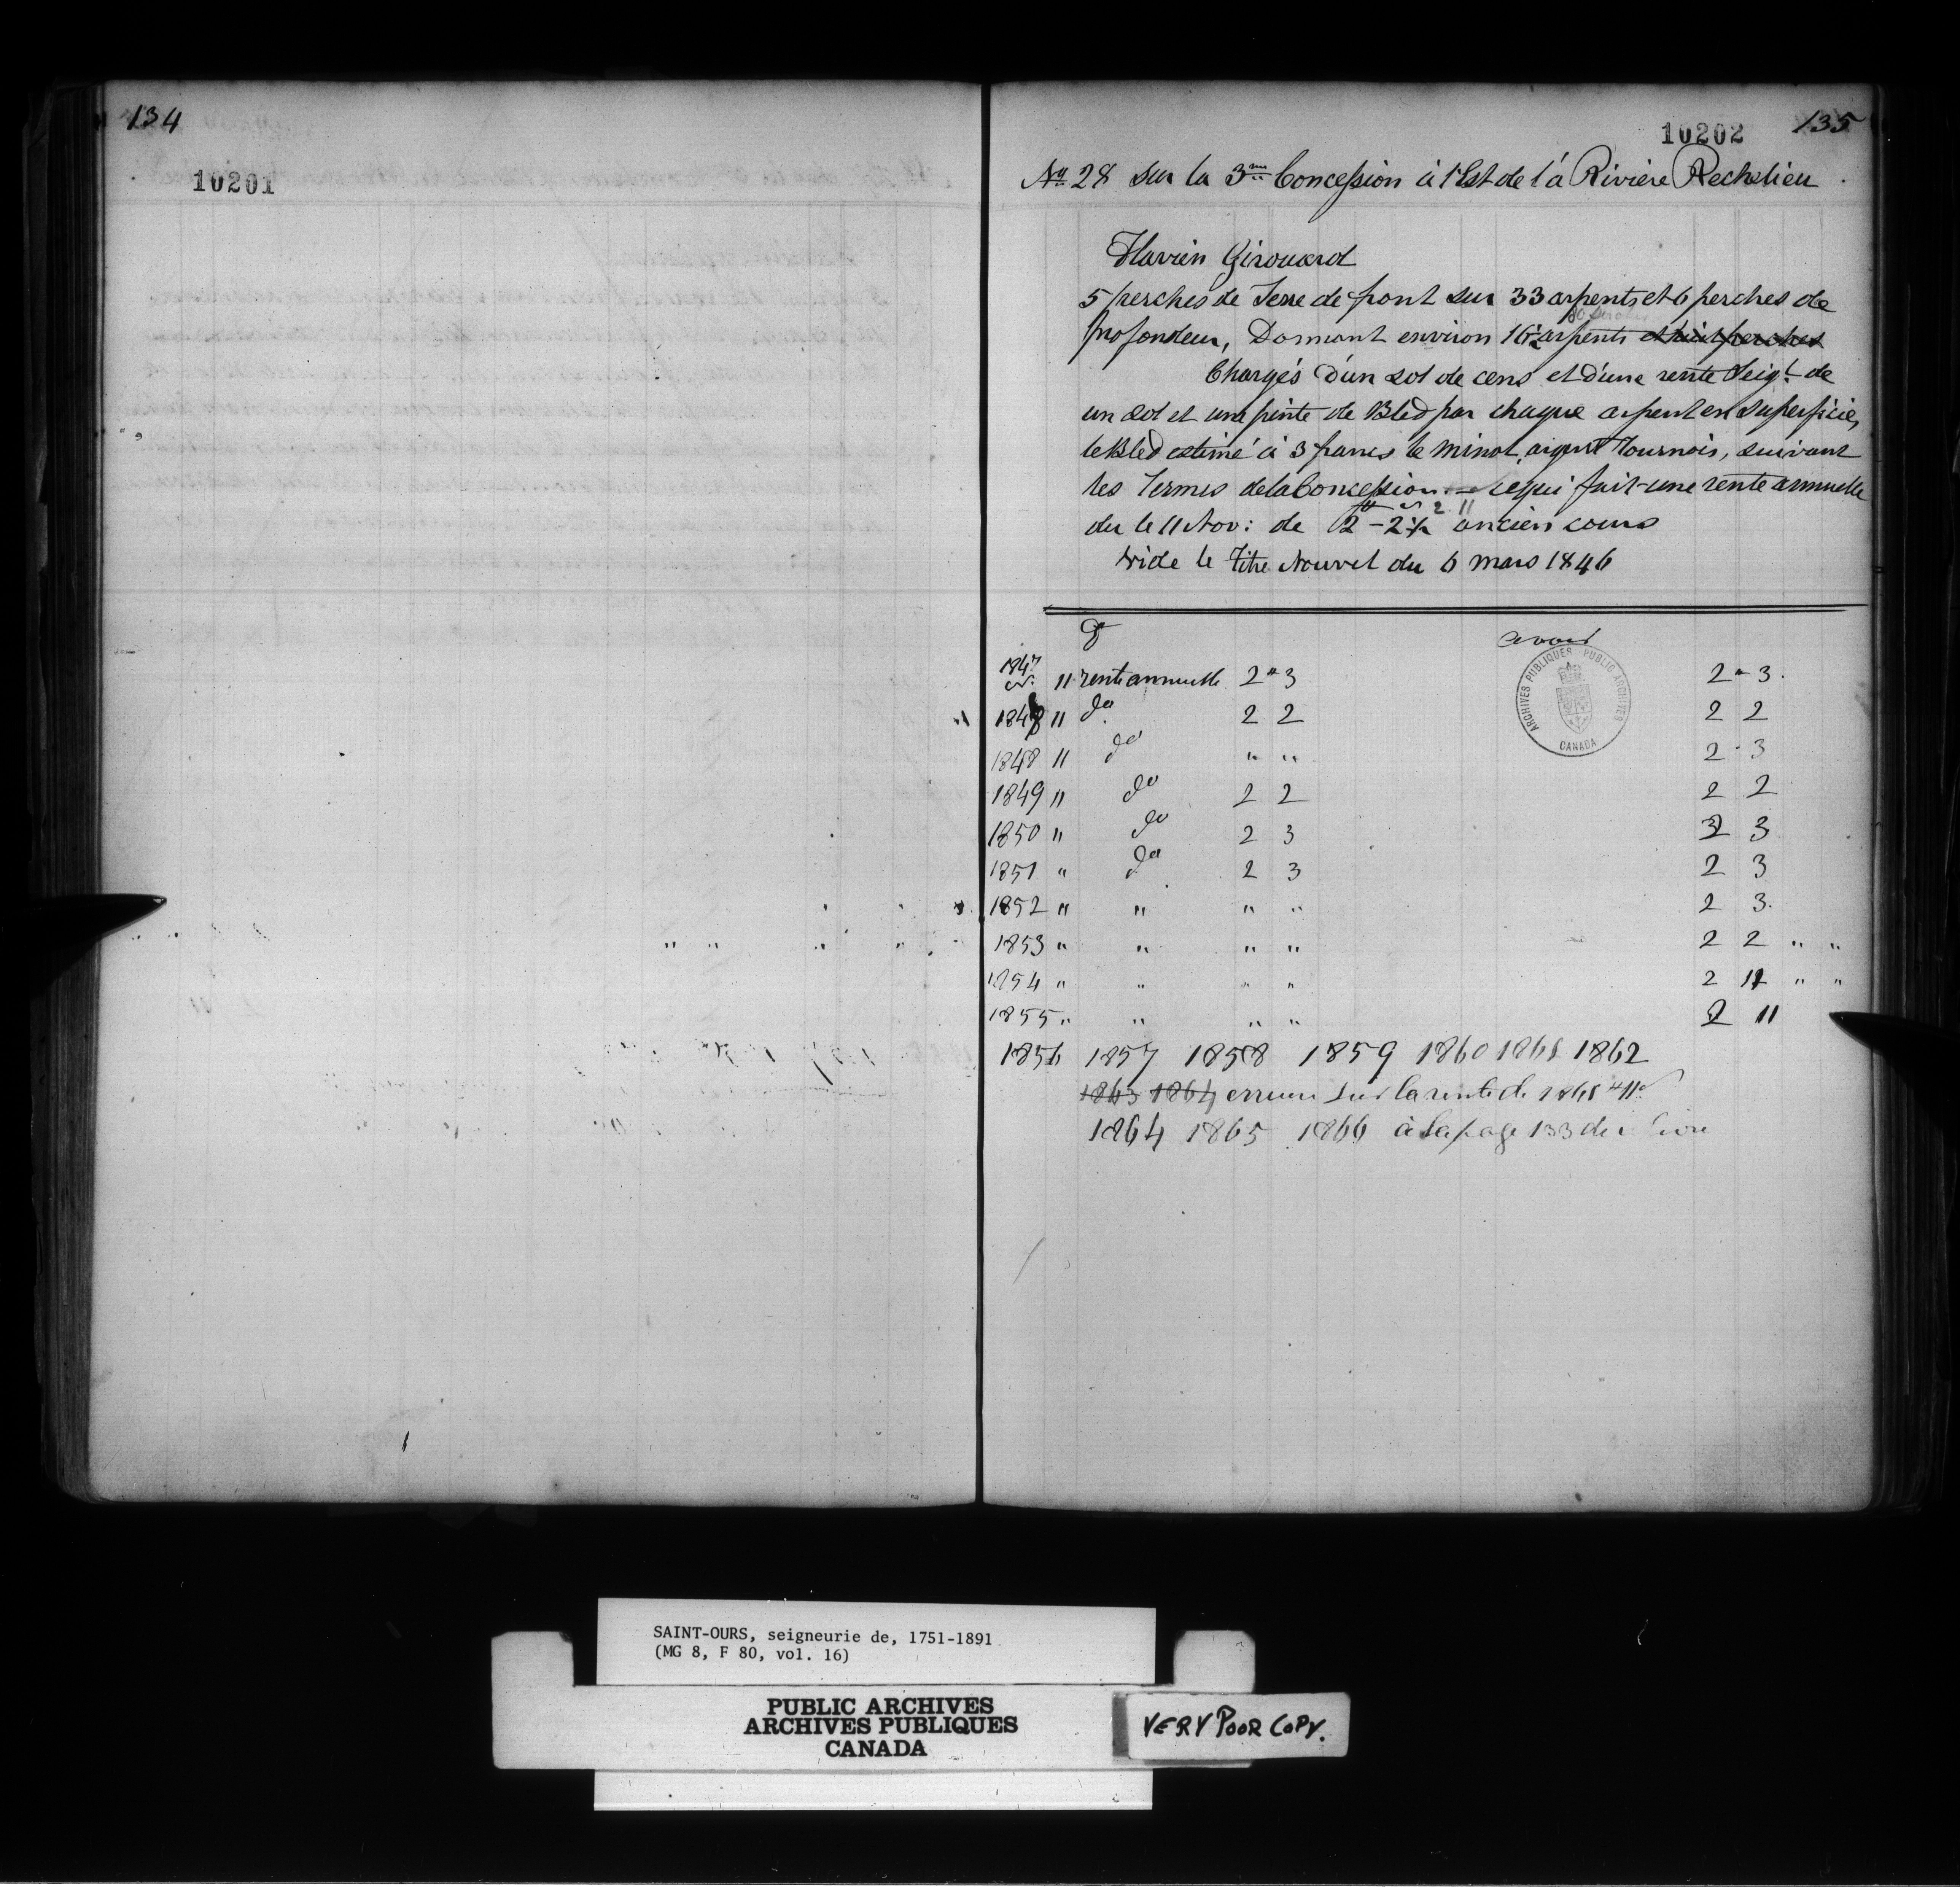 134
10201
10202 135
No 28 sur la 3me Concession à l'Est de la Rivière Rechelieu
Flavien Girouard
5 perches de Terre de front sur 33 arpents et 6 perches de
profondeur, Donnant environ 16 1/2 arpents et huit perches
Chargés d'un sol de cens et d'une rente Seig.l de
un sol et une pinte de Bled par chaque arpent en superficie,
le Bled estimé à 3 francs le minot, argent Tournois, suivant
les Termes de la Concession. — ce qui fait une rente annuelle
2 11
du le 11 Nov: de 2 - 2 ancien cours
vide le Titre Nouvel du 6 mars 1846
D avoir
1847 11 rente annuelle 2 " 3 2 " 3.
1848 11 do 2 2 2 2
1848 11 do " " 2 - 3
1849 " do 2 2 2 2
1850 " do 2 3 2 3
1851 " do 2 3 2 3
1852 " " " " 2 3.
1853 " " " " 2 2 " "
1854 " " " " 2 " "
1855 " " " " 2 11
1856 1857 1858 1859 1860 1861 1862
1863 1864 erreur sur la rente de
1864 1865 1866 à la page 133 de
ARCHIVES PUBLIQUES PUBLIC ARCHIVES
CANADA
SAINT-OURS, seigneurie de, 1751-1891
(MG 8, F 80, vol. 16)
PUBLIC ARCHIVES
ARCHIVES PUBLIQUES
CANADA
VERY POOR COPY.